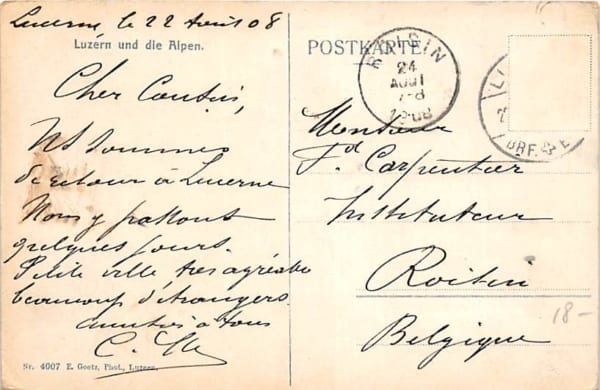 Lucerne le 22 Août 08
Luzern und die Alpen.
Cher Cousin,
Ns sommes
de retour à Lucerne
Nous y passons
quelques jours.
Petite ville très agréable
beaucoup d'étrangers.
amitiés à tous
Nr. 4007 E. Goetz, Phot., Luzern.
POSTKARTE
ROISIN
24
AOUT
7-8
1908
Monsieur
Fd Carpentier
Instituteur
Roisin
Belgique
18-